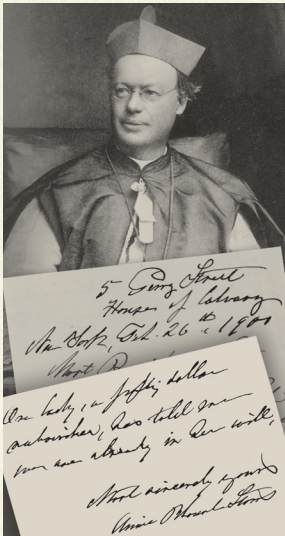 5 Perry Street
House of Calvary
New York, Feb. 26th, 1900
Most
One lady, a fifty dollar
subscriber, has told me
we are already in her will,
Most sincerely yours
Annie